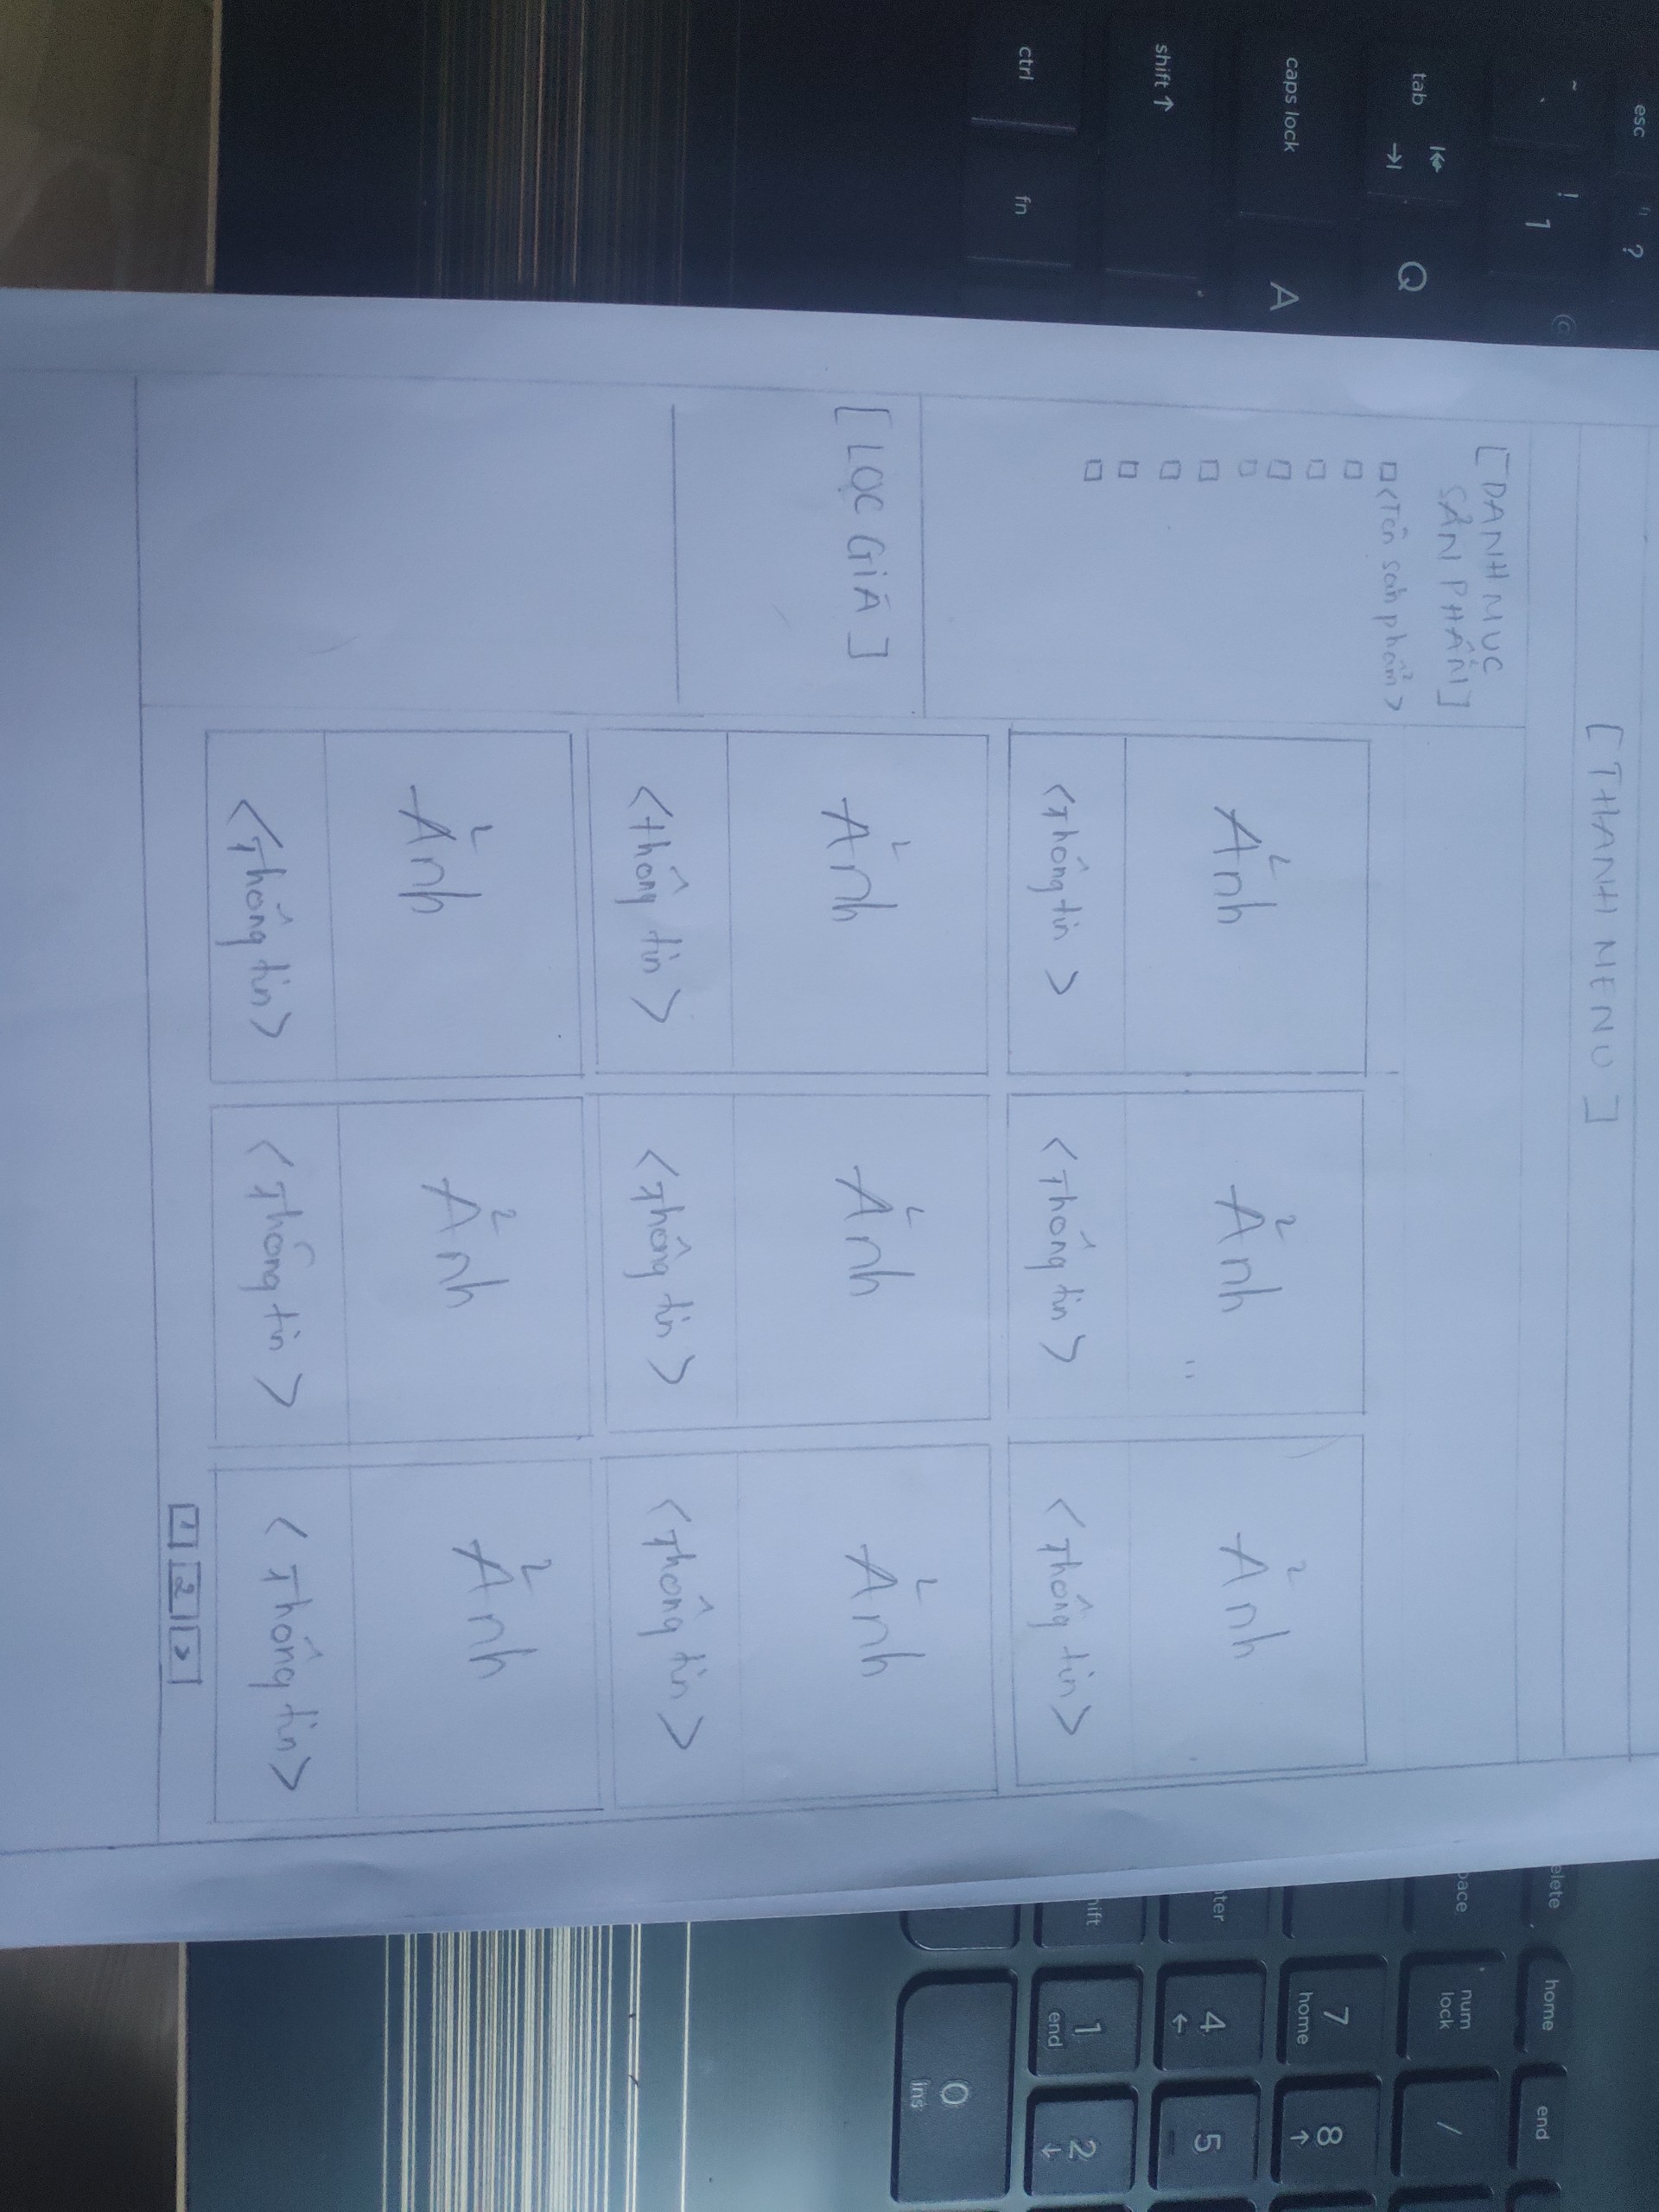 [THANH MENU]
[DANH MỤC
SẢN PHẨM]
<Tên sản phẩm>
[LỌC GIÁ]
Ảnh
Ảnh
Ảnh
<Thông tin>
<Thông tin>
<Thông tin>
Ảnh
Ảnh
Ảnh
<thông tin>
<Thông tin>
<Thông tin>
Ảnh
Ảnh
Ảnh
<Thông tin>
<Thông tin>
<Thông tin>
1 2 >
esc
?
~
`
!
1
@
tab
Q
caps lock
A
shift ↑
ctrl
fn
elete
home
end
pace
num
lock
/
7
home
8
↑
nter
4
←
5
hift
1
end
2
↓
0
ins